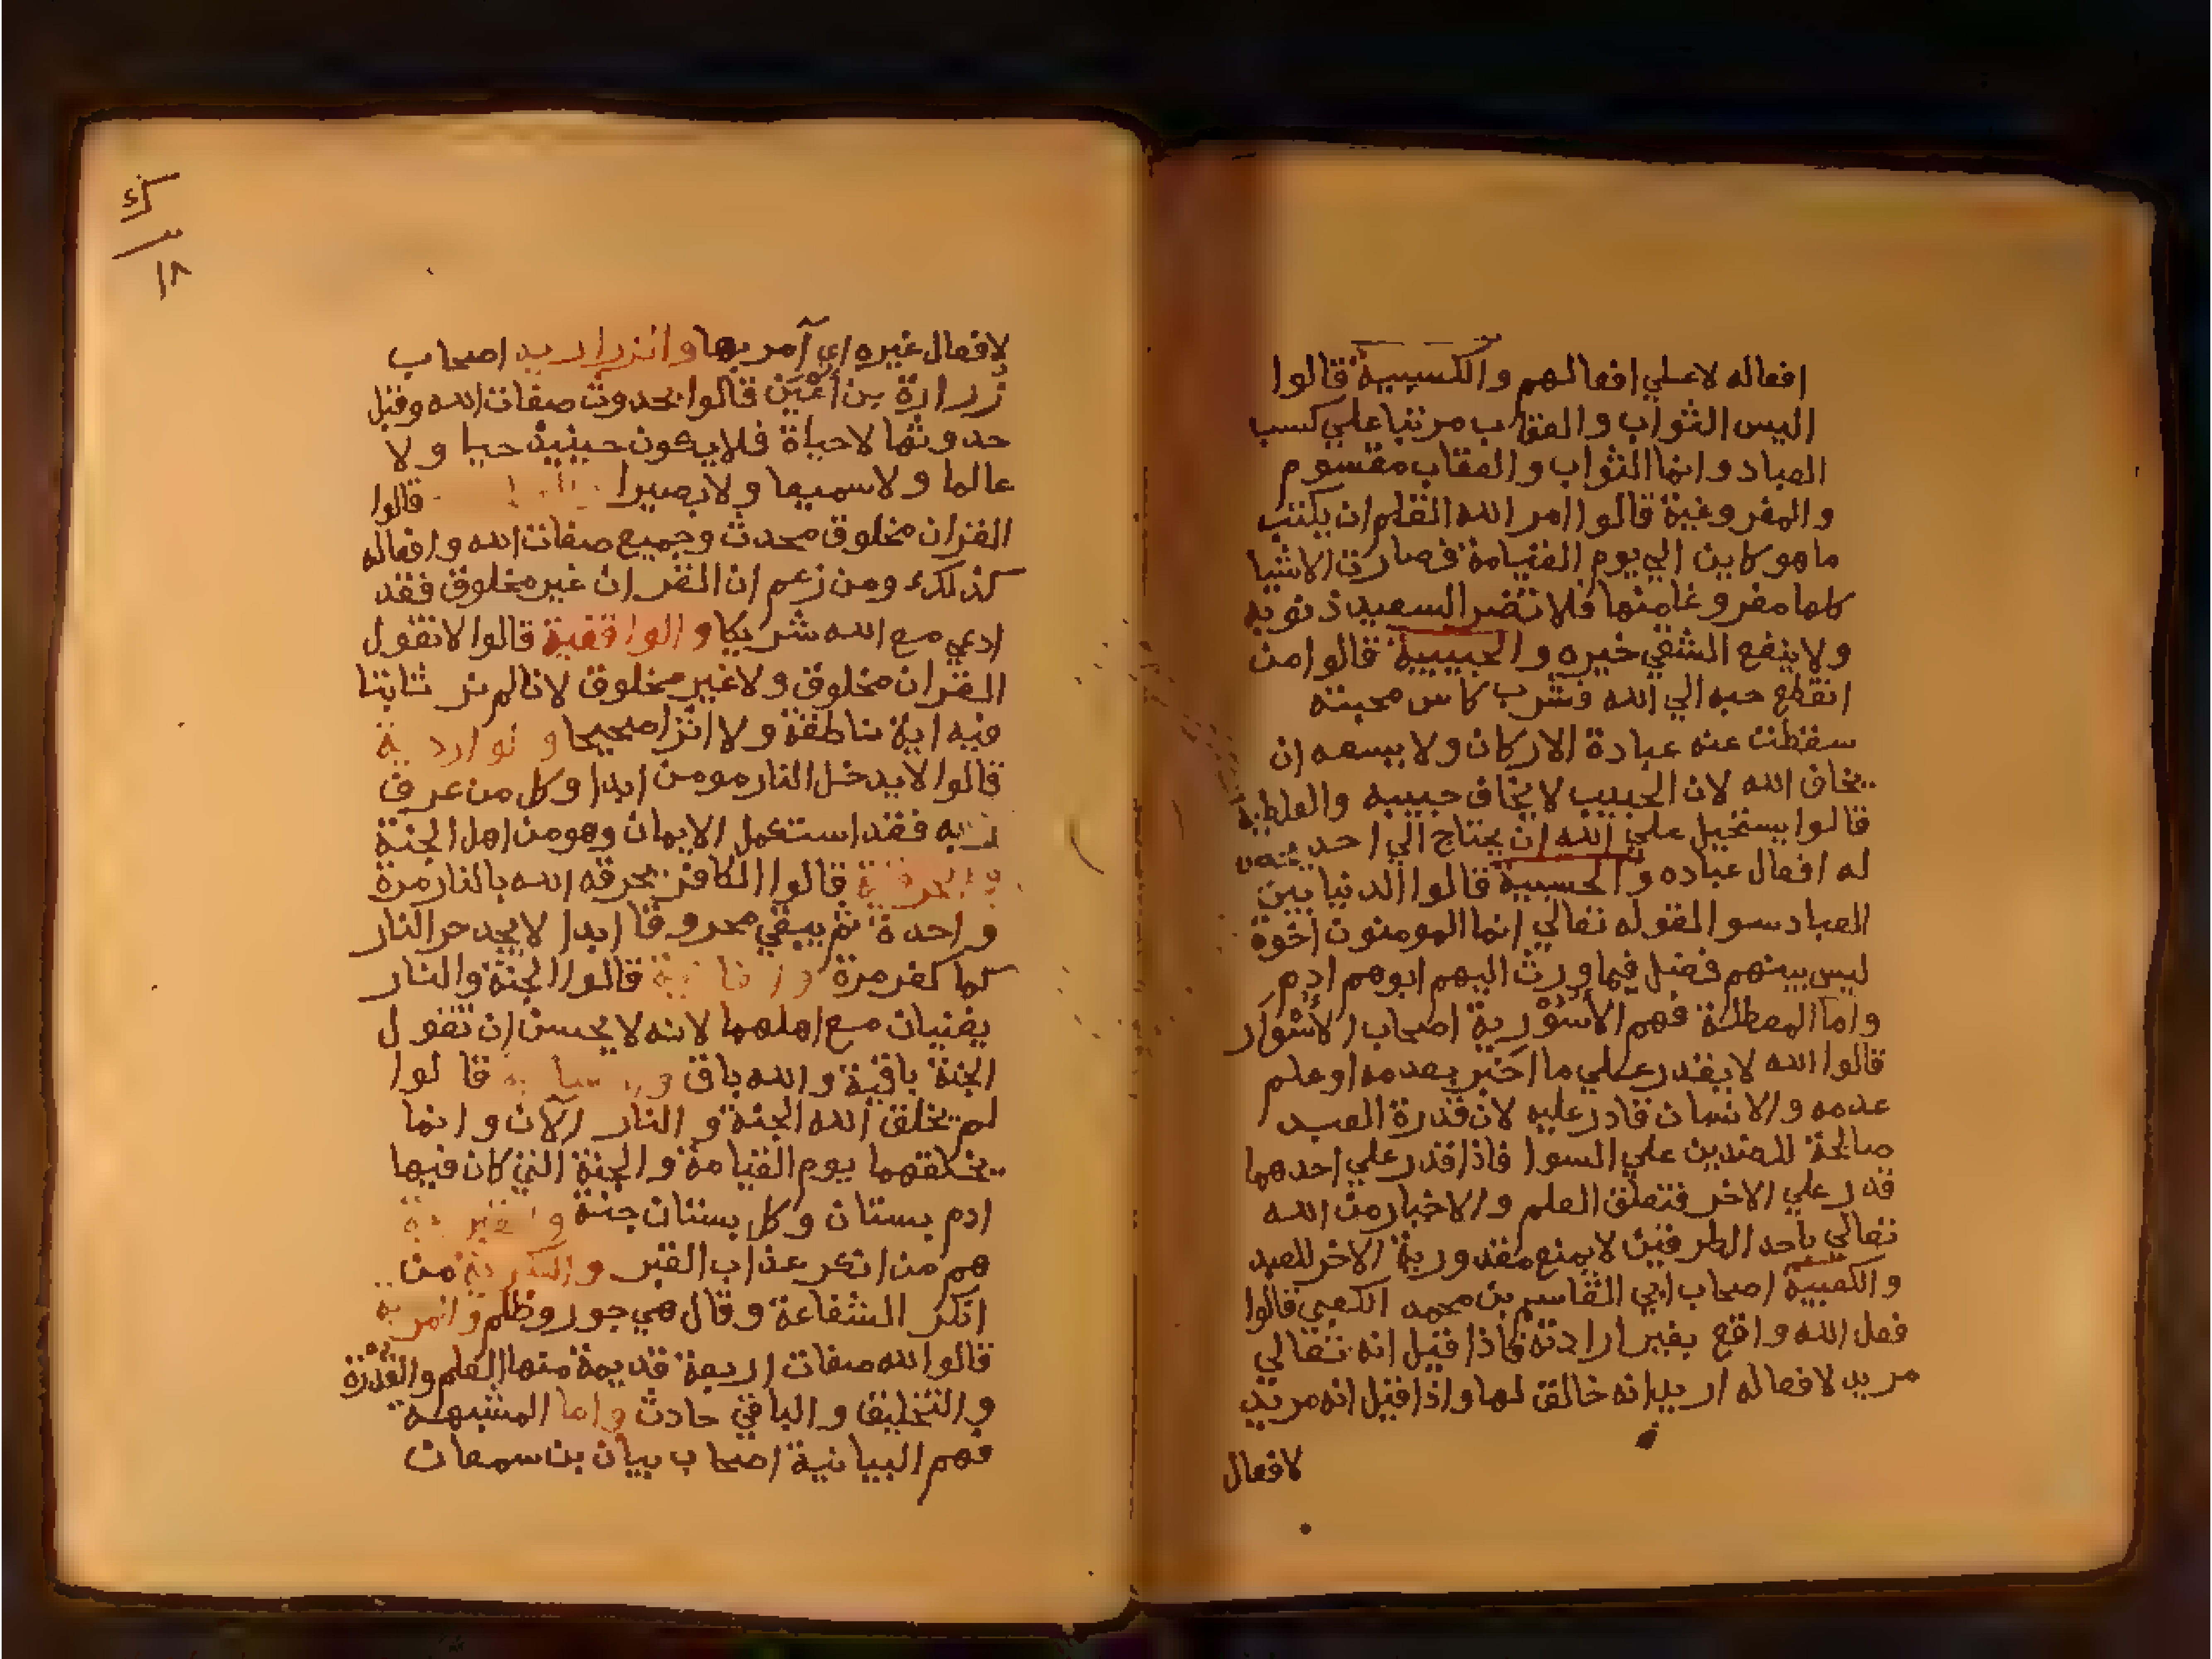 افعاله لا علي افعالهم والكسبية قالوا
اليس الثواب والعقاب مرتبا علي كسب
العباد وانما الثواب والعقاب مقسوم
والمفروغية قالوا امر الله القلم ان يكتب
ما هو كاين الي يوم القيامة فصارت الاشيا
كلها مفروغا منها فلا تضر السعيد ذنوبه
ولا ينفع الشقي خيره والحبيبية قالوا من
انقطع حبه الي الله وشرب كاس محبته
سقطت عنه عبادة الاركان ولا يسعه ان
يخاف الله لان الحبيب لا يخاف حبيبه
قالوا يستحيل علي الله ان يحتاج الي احد
له افعال عباده والحسبية قالوا الدنيا بين
العباد سوا لقوله تعالي انما المومنون اخوة
ليس بينهم فضل فيما ورث اليهم ابوهم ادم
واما المعطلة فهم الأسْوَرية اصحاب الأسْوَار
قالوا الله لا يقدر علي ما اخبر بعدمه او علم
عدمه والانسان قادر عليه لان قدرة العبد
صالحة للضدين علي السوا فاذا قدر علي احدهما
قدر علي الاخر فتعلق العلم والاخبار من الله
تعالي باحد الطرفين لا يمنع مقدورية الاخر للعبد
والكعبية اصحاب ابي القاسم بن محمد الكعبي قالوا
فعل الله واقع بغير ارادته فاذا قيل انه تعالي
مريد لافعاله اريد انه خالق لها واذا قيل انه مريد
لافعال
١٨
لافعال غيره اي آمر بها اصحاب
زرارة بن أعْيَن قالوا بحدوث صفات الله وقبل
حدوثها لا حياة فلا يكون حينيذ حيا ولا
عالما ولا سميعا ولا بصيرا قالوا
القران مخلوق محدث وجميع صفات الله وافعاله
كذلك ومن زعم ان القران غير مخلوق فقد
ادعي مع الله شريكا والواقفية قالوا لا نقول
القران مخلوق ولا غير مخلوق لانا لم نر ثابتا
فيه اية ناطقة ولا اثرا صحيحا و
قالوا لا يدخل النار مومن ابدا وكل من عرف
ربه فقد استعمل الايمان وهو من اهل الجنة
قالوا الكافر يحرقه الله بالنار مرة
واحدة ثم يبقي محروقا ابدا لا يجد حر النار
كما كفر مرة قالوا الجنة والنار
يفنيان مع اهلهما لانه لا يحسن ان نقول
الجنة باقية والله باق قالوا
لم يخلق الله الجنة والنار الآن وانما
يخلقهما يوم القيامة والجنة التي كان فيها
ادم بستان وكل بستان جنة والقبرية
هم من انكر عذاب القبر من
انكر الشفاعة وقال هي جور وظلم
قالوا لله صفات اربعة قديمة منها العلم والقدرة
والتخليق والباقي حادث واما المشبهة
فهم البيانية اصحاب بيان بن سمعان